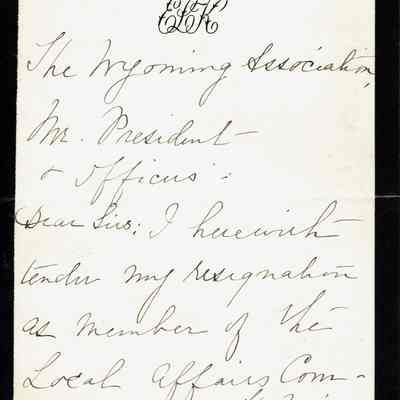 The Wyoming Association,
Mr. President
& Officers:
Dear Sirs: I herewith
tender my resignation
as member of the
Local Affairs Com-